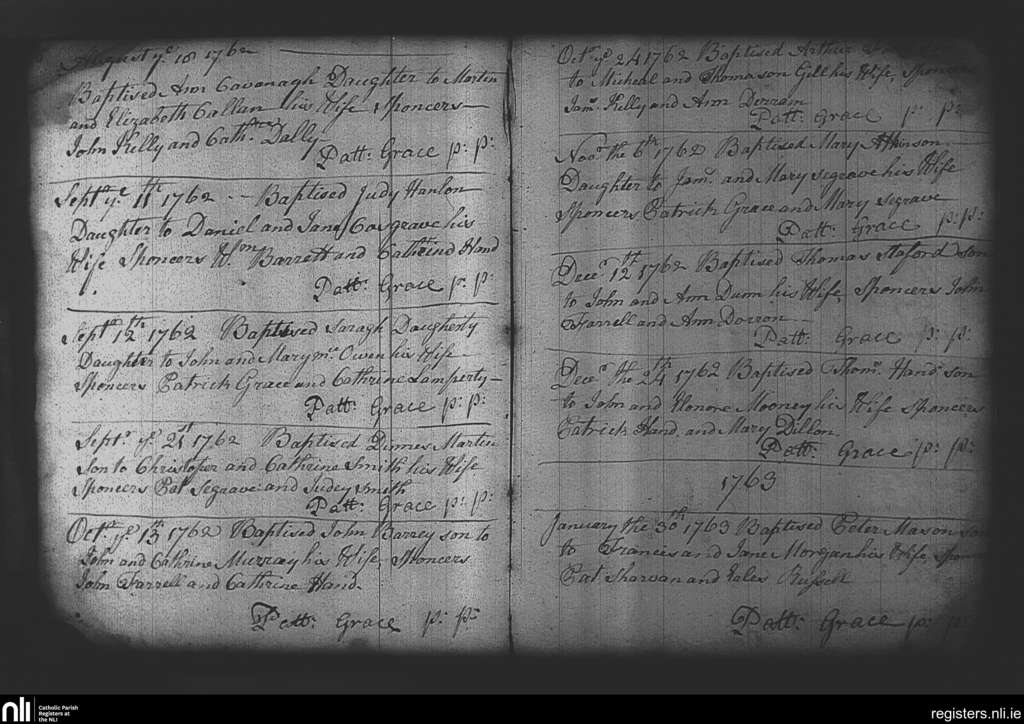 August ye 18 1762
Baptised Ann Cavanagh Daughter to Martin
and Elizabeth Callan his Wife Sponcers
John Kelly and Cathrine Dally
Patt: Grace p: p:
Septr ye 11th 1762 -- Baptised Judy Hanlon
Daughter to Daniel and Jane Cosgrave his
Wife Sponcers Wm Barrett and Cathrine Hand
Patt: Grace p: p:
Septr 12th 1762 Baptised Saragh Daugherty
Daughter to John and Mary mc Owen his Wife
Sponcers Patrick Grace and Cathrine Lamperty
Patt: Grace p: p:
Septr ye 21st 1762 Baptised Dinnes Martin
Son to Christopher and Cathrine Smith his Wife
Sponcers Pat Segrave and Judey Smith
Patt: Grace p: p:
Octr ye 13th 1762 Baptised John Barrey son to
John and Cathrine Murray his Wife, Sponcers
John Farrell and Cathrine Hand.
Patt: Grace p: p:
Octr ye 24 1762 Baptised Arthur
to Micheal and Thomason Gill his Wife, Sponcers
Jams Kelly and Ann Dorram
Patt: Grace p: p:
Novr the 6th 1762 Baptised Mary Atkinson
Daughter to Jams and Mary Segrave his Wife
Sponcers Patrick Grace and Mary Segrave
Patt: Grace p: p:
Decr 12th 1762 Baptised Thomas Staford son
to John and Ann Dunn his Wife, Sponcers John
Farrell and Ann Dorron
Patt: Grace p: p:
Decr the 24th 1762 Baptised Thoms Hand son
to John and Honore Mooney his Wife Sponcers
Patrick Hand, and Mary Dillon
Patt: Grace p: p:
1763
January the 30th 1763 Baptised Peter Mason son
to Francis and Jane Morgan his Wife,
Pat Sharvan and Eales Russell
Patt: Grace p: p:
nli
Catholic Parish
Registers at
the NLI
registers.nli.ie